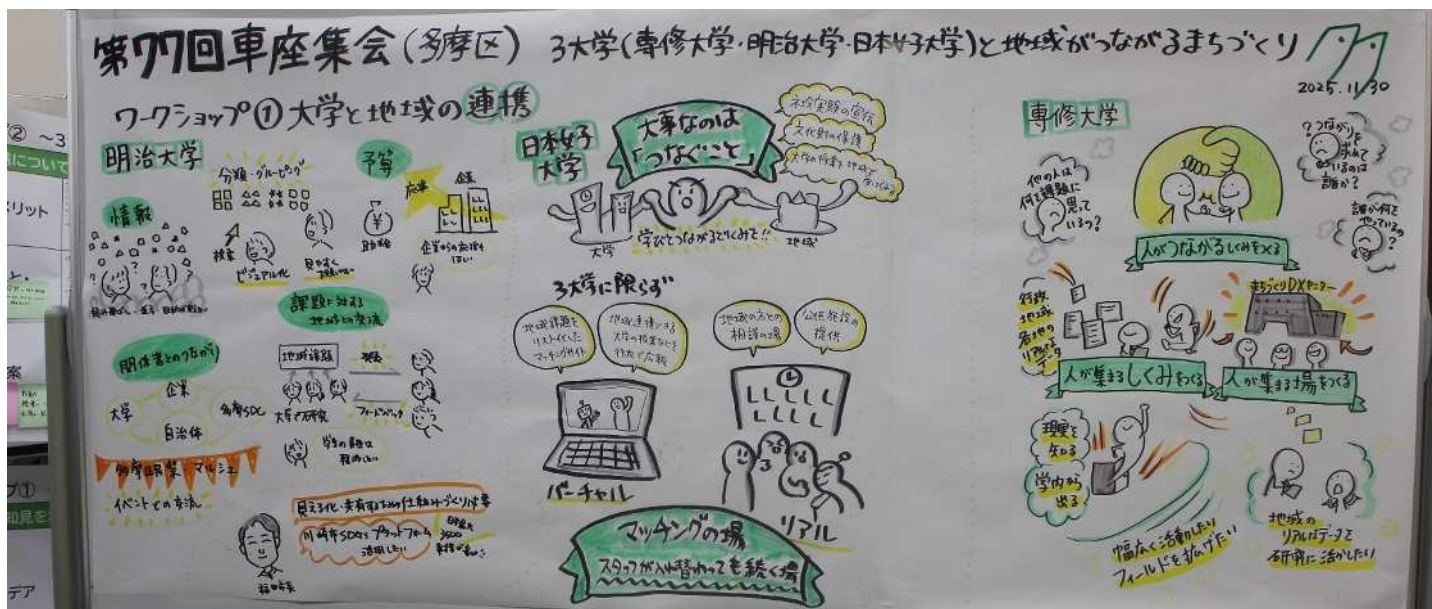 第77回車座集会(多摩区) 3大学(専修大学・明治大学・日本女子大学)と地域がつながるまちづくり
2025.11/30
ワークショップ① 大学と地域の連携
明治大学
情報
分類・グルーピング
検索
ビジュアル化
見やすく
予算
助成金
企業
企業からの応援も
ほしい
課題に対する
地域との交流
地域課題
大学で研究
発表
フィードバック
関係者とのつながり
企業
大学
多摩SDC
自治体
多摩区民祭・マルシェ
イベントとの交流
見える化・共有するための仕組みづくりは大事
川崎市SDGsプラットフォーム
活用したい
福田市長
日本女子
大学
大事なのは
「つなぐこと」
社会実験の宣伝
文化財の保護
大学の授業を地域で
大学
学びとつながるしくみで!!
地域
3大学に限らず
地域課題を
リスト化した
マッチングサイト
地域連携できる
大学の授業などを
行政で広報
地域の方との
相談の場
公共施設の
提供
バーチャル
リアル
マッチングの場
スタッフが入れ替わっても続く場
専修大学
他の人は
何を課題に
思って
いるの?
?つながりを
求めて
いるのは
誰か?
誰が何を
やっているの
?
人がつながるしくみをつくる
行政
地域
各地の
リアルな
データ
まちづくりDXセンター
人が集まるしくみをつくる
人が集まる場をつくる
現場を
知る
学内から
出る
幅広く活動したい
フィールドを拡げたい
地域の
リアルなデータを
研究に活かしたい
② ~3
について
メリット
案
プ①
知見を
デア